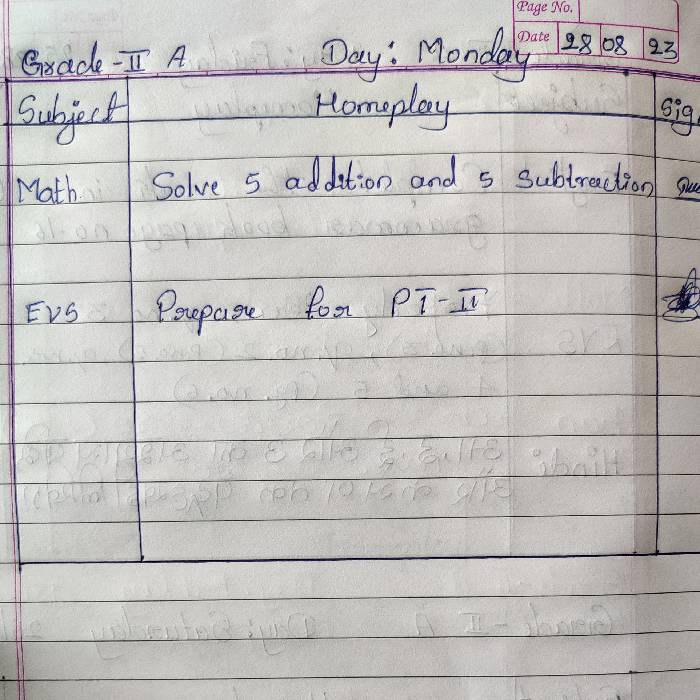 Page No.
Date 28 08 23
Grade - II A Day: Monday
Subject Homeplay Sig.
Math. Solve 5 addition and 5 subtraction
EVS Prepare for PT-II